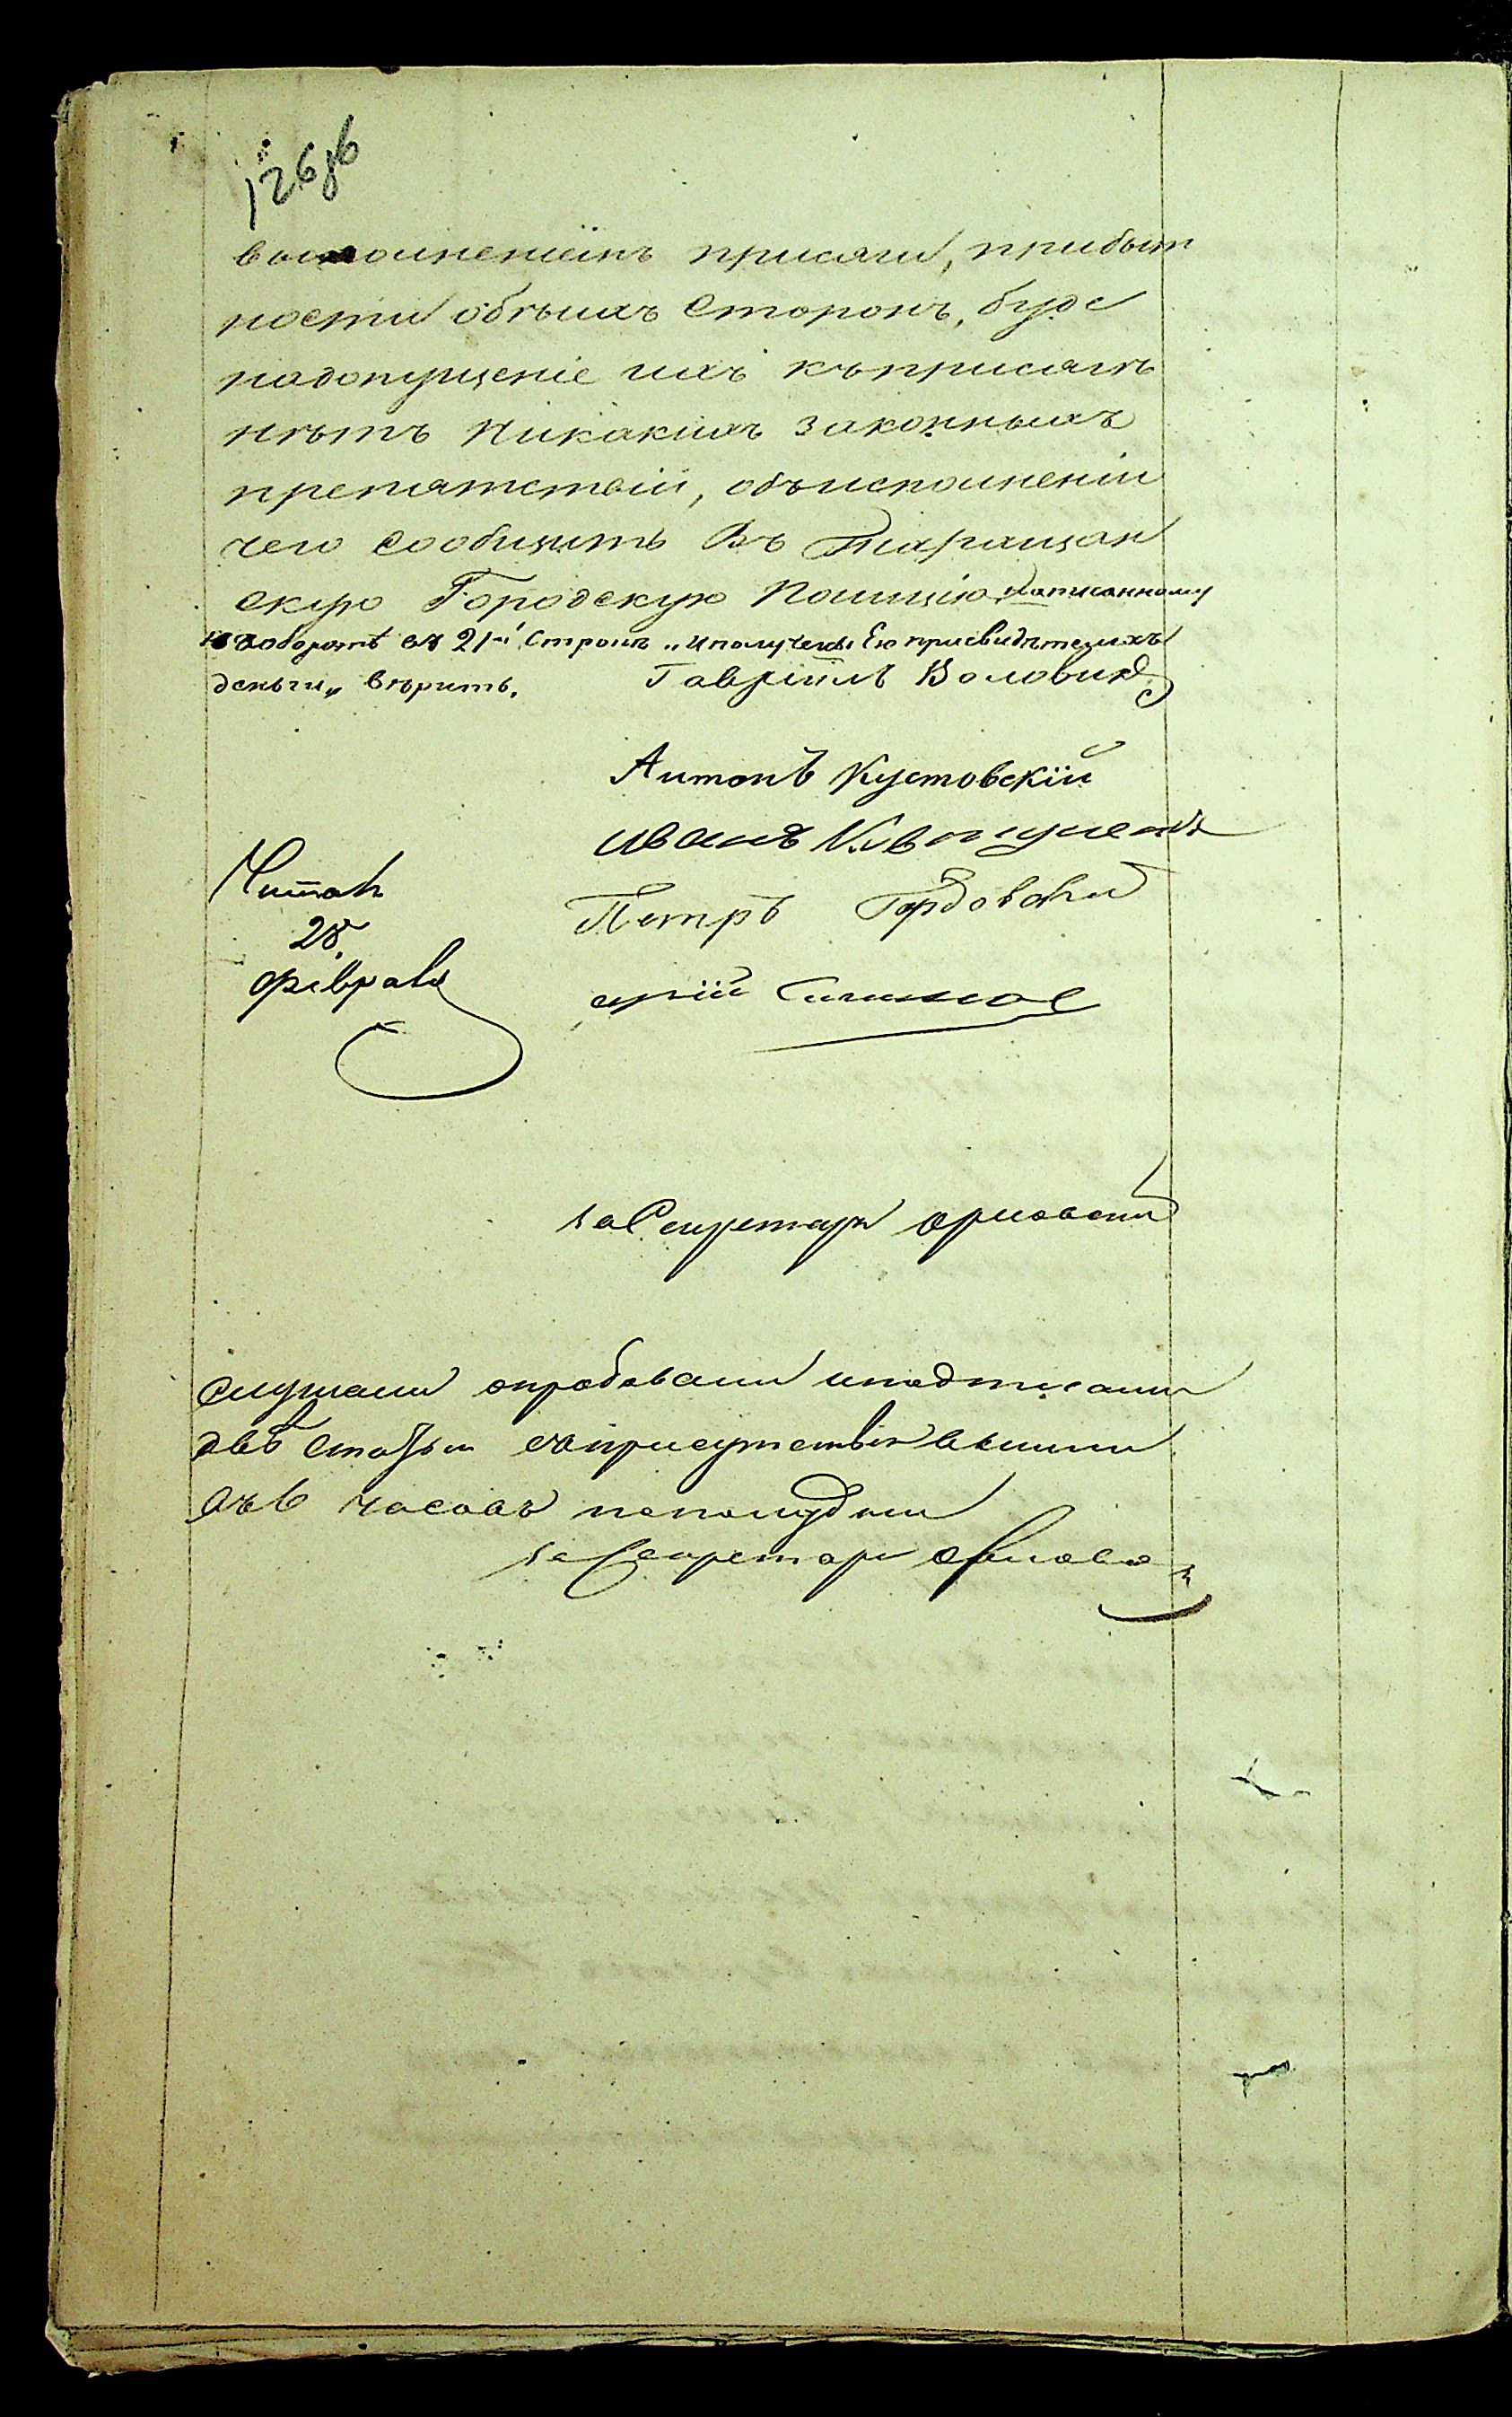 126 об
выполненіемъ присяги, прибыт
ности обѣихъ Сторонъ, буде
надопущеніе ихъ къприсягѣ
нѣтъ Никакихъ законныхъ
препятствій, объисполненіи
чего сообщить Въ Таращан
скую Городскую Полицію. Написанному
наоборотѣ въ 21-й Строкѣ „Иполучены Ею присвидѣтеляхъ
деньги„ вѣрить.
Гавріилъ Воловик
Антонъ Кустовскій
Иванъ
Петръ
Читалъ
28
Февраля
за Секретаря Орловскій
Слушали опробовали иподписали
двѣ Статьи
въ 6 часовъ пополудни
за Секретаря